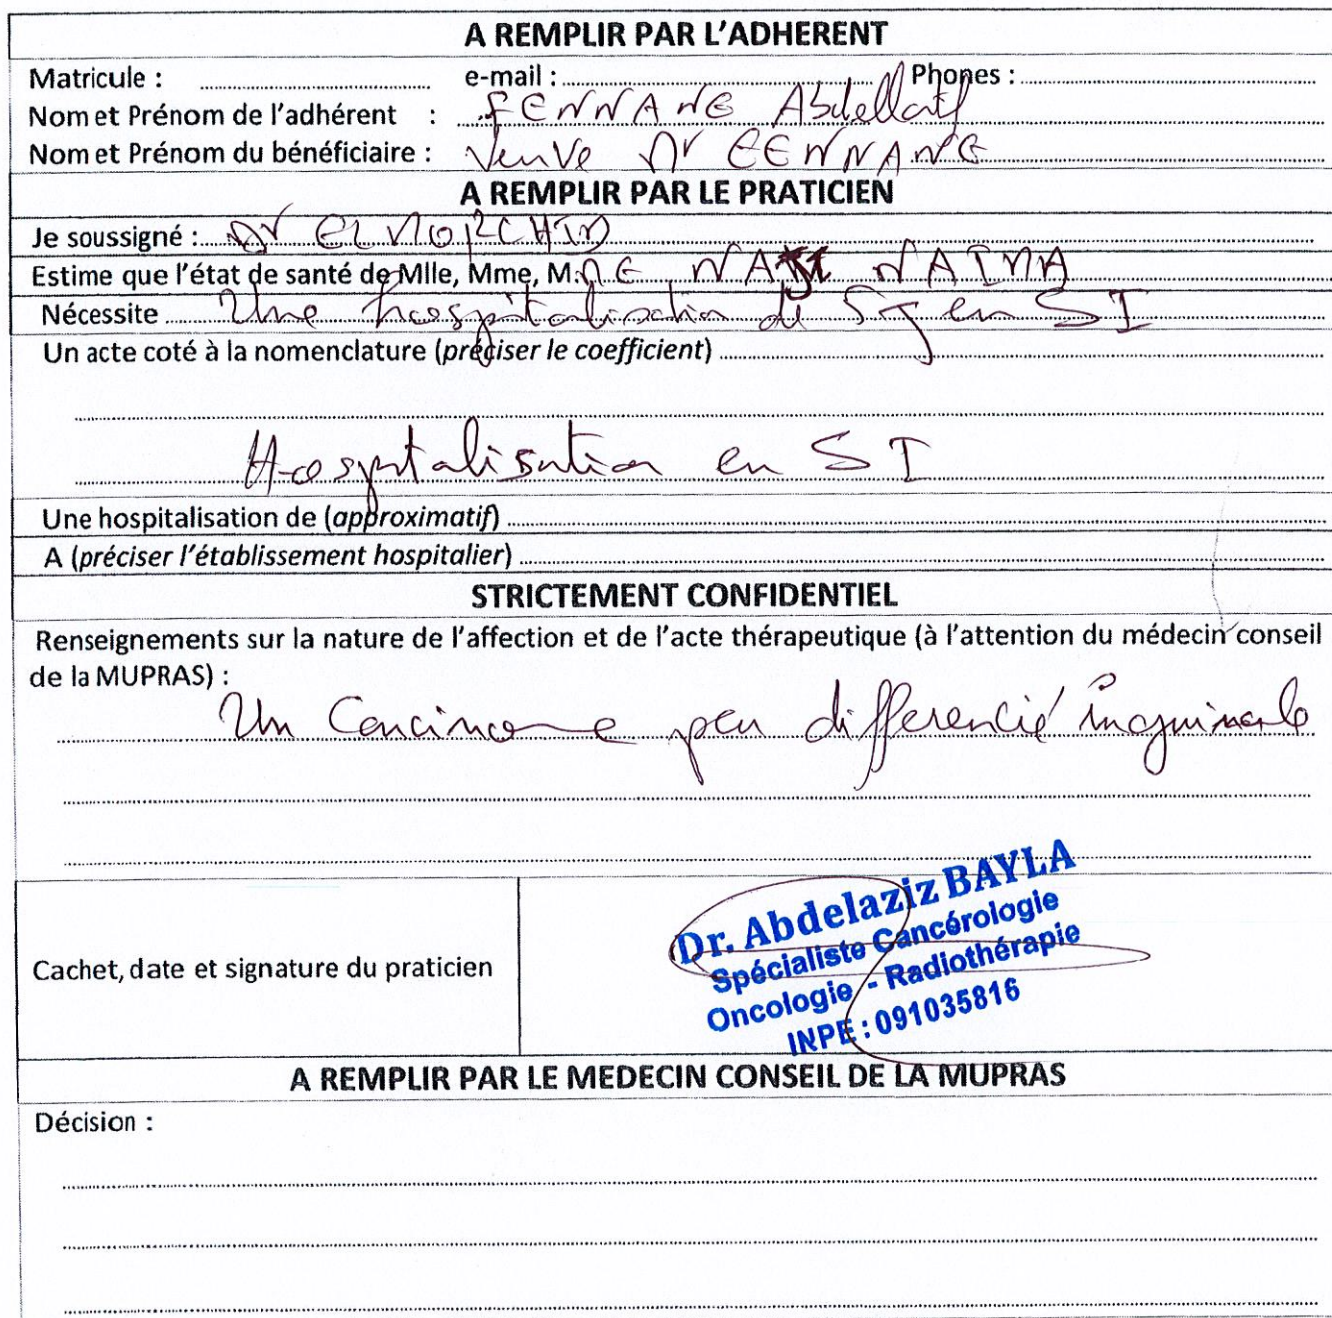 A REMPLIR PAR L'ADHERENT
Matricule : e-mail : Phones :
Nom et Prénom de l'adhérent : FENNANE Abdellatif
Nom et Prénom du bénéficiaire : Veuve Mr FENNANE
A REMPLIR PAR LE PRATICIEN
Je soussigné : Dr
Estime que l'état de santé de Mlle, Mme, M. NAIMA
Nécessite Une hospitalisation de 5J en SI
Un acte coté à la nomenclature (préciser le coefficient)
Hospitalisation en SI
Une hospitalisation de (approximatif)
A (préciser l'établissement hospitalier)
STRICTEMENT CONFIDENTIEL
Renseignements sur la nature de l'affection et de l'acte thérapeutique (à l'attention du médecin conseil
de la MUPRAS) :
Un Carcinome peu differencié inguinale
Dr. Abdelaziz BAYLA
Spécialiste Cancérologie
Oncologie - Radiothérapie
INPE : 091035816
Cachet, date et signature du praticien
A REMPLIR PAR LE MEDECIN CONSEIL DE LA MUPRAS
Décision :